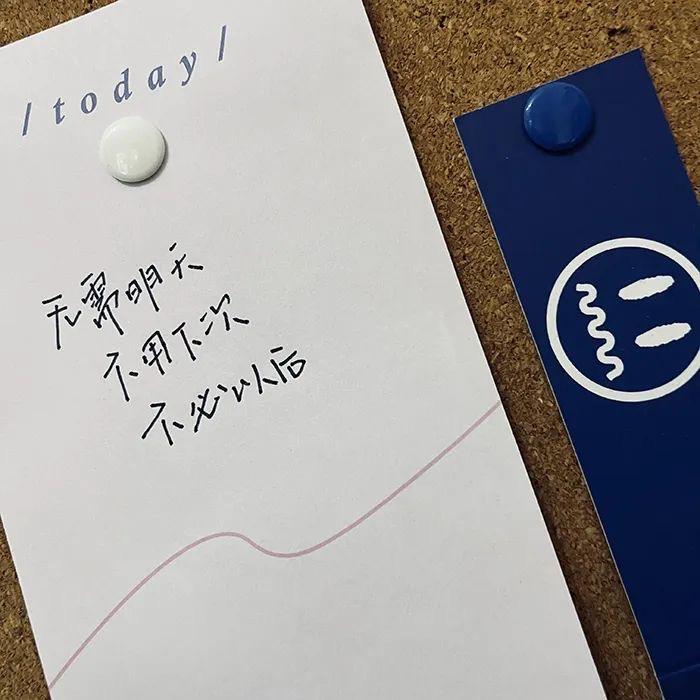 /today/
无需明天
不用下次
不必以后